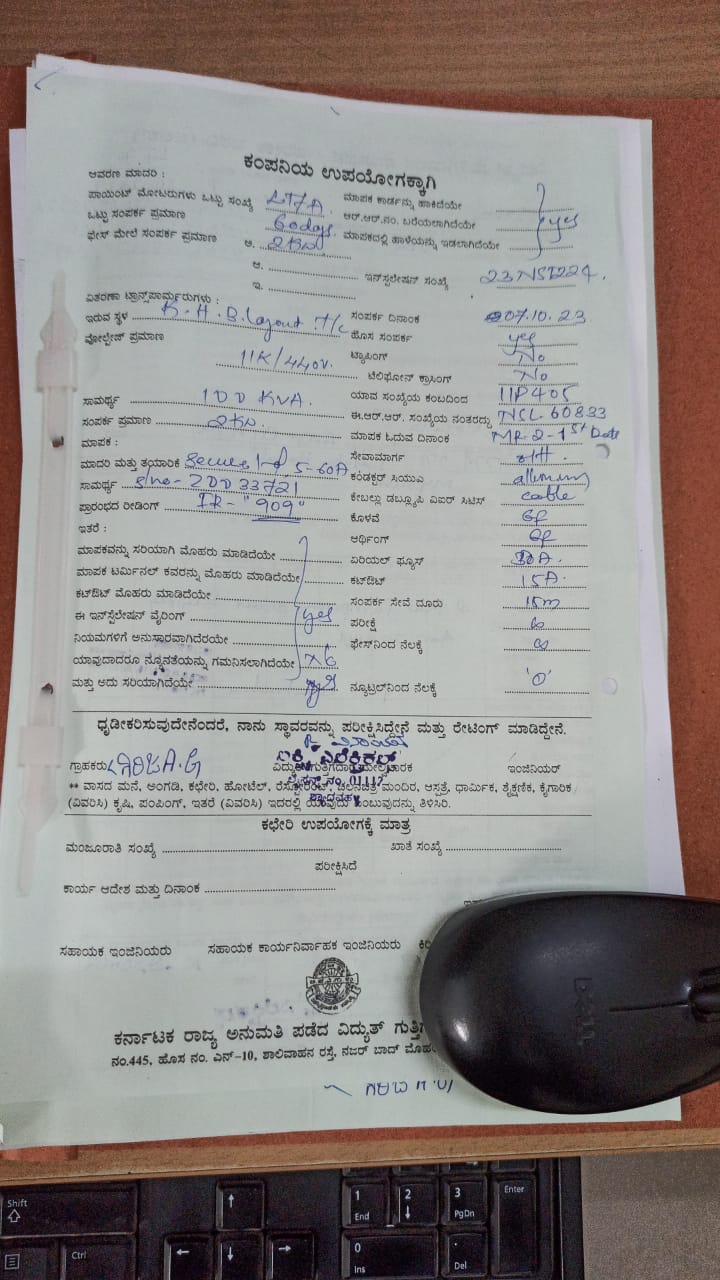 ಕಂಪನಿಯ ಉಪಯೋಗಕ್ಕಾಗಿ
ಆವರಣ ಮಾದರಿ :
ಪಾಯಿಂಟ್ ಮೋಟರುಗಳು ಒಟ್ಟು ಸಂಖ್ಯೆ LT7A ಮಾಪಕ ಕಾರ್ಡನ್ನು ಹಾಕಿದೆಯೇ
ಒಟ್ಟು ಸಂಪರ್ಕ ಪ್ರಮಾಣ 60days ಆರ್.ಆರ್.ನಂ. ಬರೆಯಲಾಗಿದೆಯೇ yes
ಫೇಸ್ ಮೇಲೆ ಸಂಪರ್ಕ ಪ್ರಮಾಣ ಅ. 2KW ಮಾಪಕದಲ್ಲಿ ಹಾಳೆಯನ್ನು ಇಡಲಾಗಿದೆಯೇ
ಆ.
ಇ. ಇನ್‌ಸ್ಟಲೇಷನ್ ಸಂಖ್ಯೆ
ವಿತರಣಾ ಟ್ರಾನ್ಸ್‌ಫಾರ್ಮರುಗಳು :
ಇರುವ ಸ್ಥಳ K.H.B. Layout T/c ಸಂಪರ್ಕ ದಿನಾಂಕ 07.10.23
ವೋಲ್ಟೇಜ್ ಪ್ರಮಾಣ ಹೊಸ ಸಂಪರ್ಕ yes
11K/440V. ಟ್ಯಾಪಿಂಗ್ No
ಟೆಲಿಫೋನ್ ಕ್ರಾಸಿಂಗ್ No
ಸಾಮರ್ಥ್ಯ 100 KVA. ಯಾವ ಸಂಖ್ಯೆಯ ಕಂಬದಿಂದ 11P405
ಸಂಪರ್ಕ ಪ್ರಮಾಣ 2KW. ಈ.ಆರ್.ಆರ್. ಸಂಖ್ಯೆಯ ನಂತರದ್ದು NSL 60833
ಮಾಪಕ : ಮಾಪಕ ಓದುವ ದಿನಾಂಕ MR-2-1st Date
ಮಾದರಿ ಮತ್ತು ತಯಾರಿಕೆ Secure 5-60A ಸೇವಾಮಾರ್ಗ oH.
ಸಾಮರ್ಥ್ಯ S/no- 2DD33721 ಕಂಡಕ್ಟರ್ ಸಿಯುಎ
ಪ್ರಾರಂಭದ ರೀಡಿಂಗ್ IR- "909" ಕೇಬಲ್ಲು ಡಬ್ಲ್ಯೂಪಿ ಎಐರ್ ಸಿಟಿಸ್ cable
ಇತರೆ : ಕೊಳವೆ GP
ಆರ್ಥಿಂಗ್ GP
ಮಾಪಕವನ್ನು ಸರಿಯಾಗಿ ಮೊಹರು ಮಾಡಿದೆಯೇ ಏರಿಯಲ್ ಫ್ಯೂಸ್ 30A.
ಮಾಪಕ ಟರ್ಮಿನಲ್ ಕವರನ್ನು ಮೊಹರು ಮಾಡಿದೆಯೇ ಕಟ್ಔಟ್ 15A.
ಕಟ್ಔಟ್ ಮೊಹರು ಮಾಡಿದೆಯೇ ಸಂಪರ್ಕ ಸೇವೆ ದೂರು 15m
ಈ ಇನ್‌ಸ್ಟೆಲೇಷನ್ ವೈರಿಂಗ್ yes ಪರೀಕ್ಷೆ ∞
ನಿಯಮಗಳಿಗೆ ಅನುಸಾರವಾಗಿದೆರಯೇ ಫೇಸ್‌ನಿಂದ ನೆಲಕ್ಕೆ ∞
ಯಾವುದಾದರೂ ನ್ಯೂನತೆಯನ್ನು ಗಮನಿಸಲಾಗಿದೆಯೇ
ಮತ್ತು ಅದು ಸರಿಯಾಗಿದೆಯೇ yes ನ್ಯೂಟ್ರಲ್‌ನಿಂದ ನೆಲಕ್ಕೆ '0'
ಧೃಡೀಕರಿಸುವುದೇನೆಂದರೆ, ನಾನು ಸ್ಥಾವರವನ್ನು ಪರೀಕ್ಷಿಸಿದ್ದೇನೆ ಮತ್ತು ರೇಟಿಂಗ್ ಮಾಡಿದ್ದೇನೆ.
ಗ್ರಾಹಕರು ವಿದ್ಯುತ್‌ಗುತ್ತಿಗೆದಾರ ಇಂಜಿನಿಯರ್
** ವಾಸದ ಮನೆ, ಅಂಗಡಿ, ಕಛೇರಿ, ಹೋಟೆಲ್, ರೆಸ್ಟೋರೆಂಟ್, ಚಲನಚಿತ್ರ ಮಂದಿರ, ಆಸ್ಪತ್ರೆ, ಧಾರ್ಮಿಕ, ಶೈಕ್ಷಣಿಕ, ಕೈಗಾರಿಕ
(ವಿವರಿಸಿ) ಕೃಷಿ, ಪಂಪಿಂಗ್, ಇತರೆ (ವಿವರಿಸಿ) ಇದರಲ್ಲಿ ಯಾವುದು ಎಂಬುವುದನ್ನು ತಿಳಿಸಿರಿ.
ಕಛೇರಿ ಉಪಯೋಗಕ್ಕೆ ಮಾತ್ರ
ಮಂಜೂರಾತಿ ಸಂಖ್ಯೆ ಖಾತೆ ಸಂಖ್ಯೆ
ಪರೀಕ್ಷಿಸಿದೆ
ಕಾರ್ಯ ಆದೇಶ ಮತ್ತು ದಿನಾಂಕ
ಸಹಾಯಕ ಇಂಜಿನಿಯರು ಸಹಾಯಕ ಕಾರ್ಯನಿರ್ವಾಹಕ ಇಂಜಿನಿಯರು
ಕರ್ನಾಟಕ ರಾಜ್ಯ ಅನುಮತಿ ಪಡೆದ ವಿದ್ಯುತ್
ನಂ.445, ಹೊಸ ನಂ. ಎನ್-10, ಶಾಲಿವಾಹನ ರಸ್ತೆ, ನಜರ್ ಬಾದ್
DELL
Shift
1 End 2 3 PgDn Enter
Ctrl 0 Ins . Del